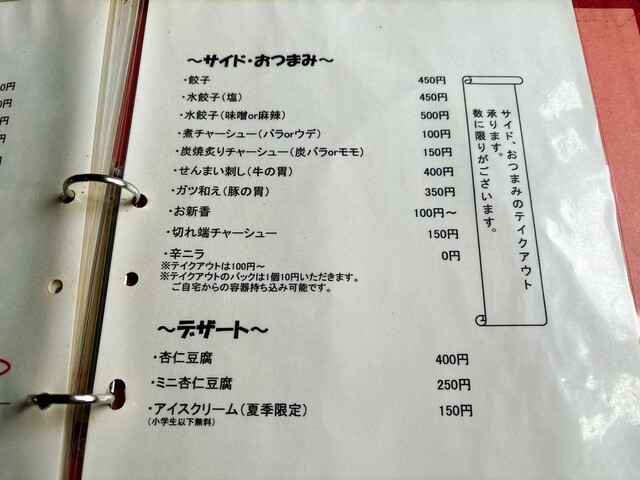 ～サイド・おつまみ～
・餃子 450円
・水餃子（塩） 450円
・水餃子（味噌or麻辣） 500円
・煮チャーシュー（バラorウデ） 100円
・炭焼炙りチャーシュー（炭バラorモモ） 150円
・せんまい刺し（牛の胃） 400円
・ガツ和え（豚の胃） 350円
・お新香 100円～
・切れ端チャーシュー 150円
・辛ニラ 0円
※テイクアウトは100円～
※テイクアウトのパックは1個10円いただきます。
ご自宅からの容器持ち込み可能です。
サイド、おつまみのテイクアウト
承ります。
数に限りがございます。
～デザート～
・杏仁豆腐 400円
・ミニ杏仁豆腐 250円
・アイスクリーム（夏季限定） 150円
（小学生以下無料）